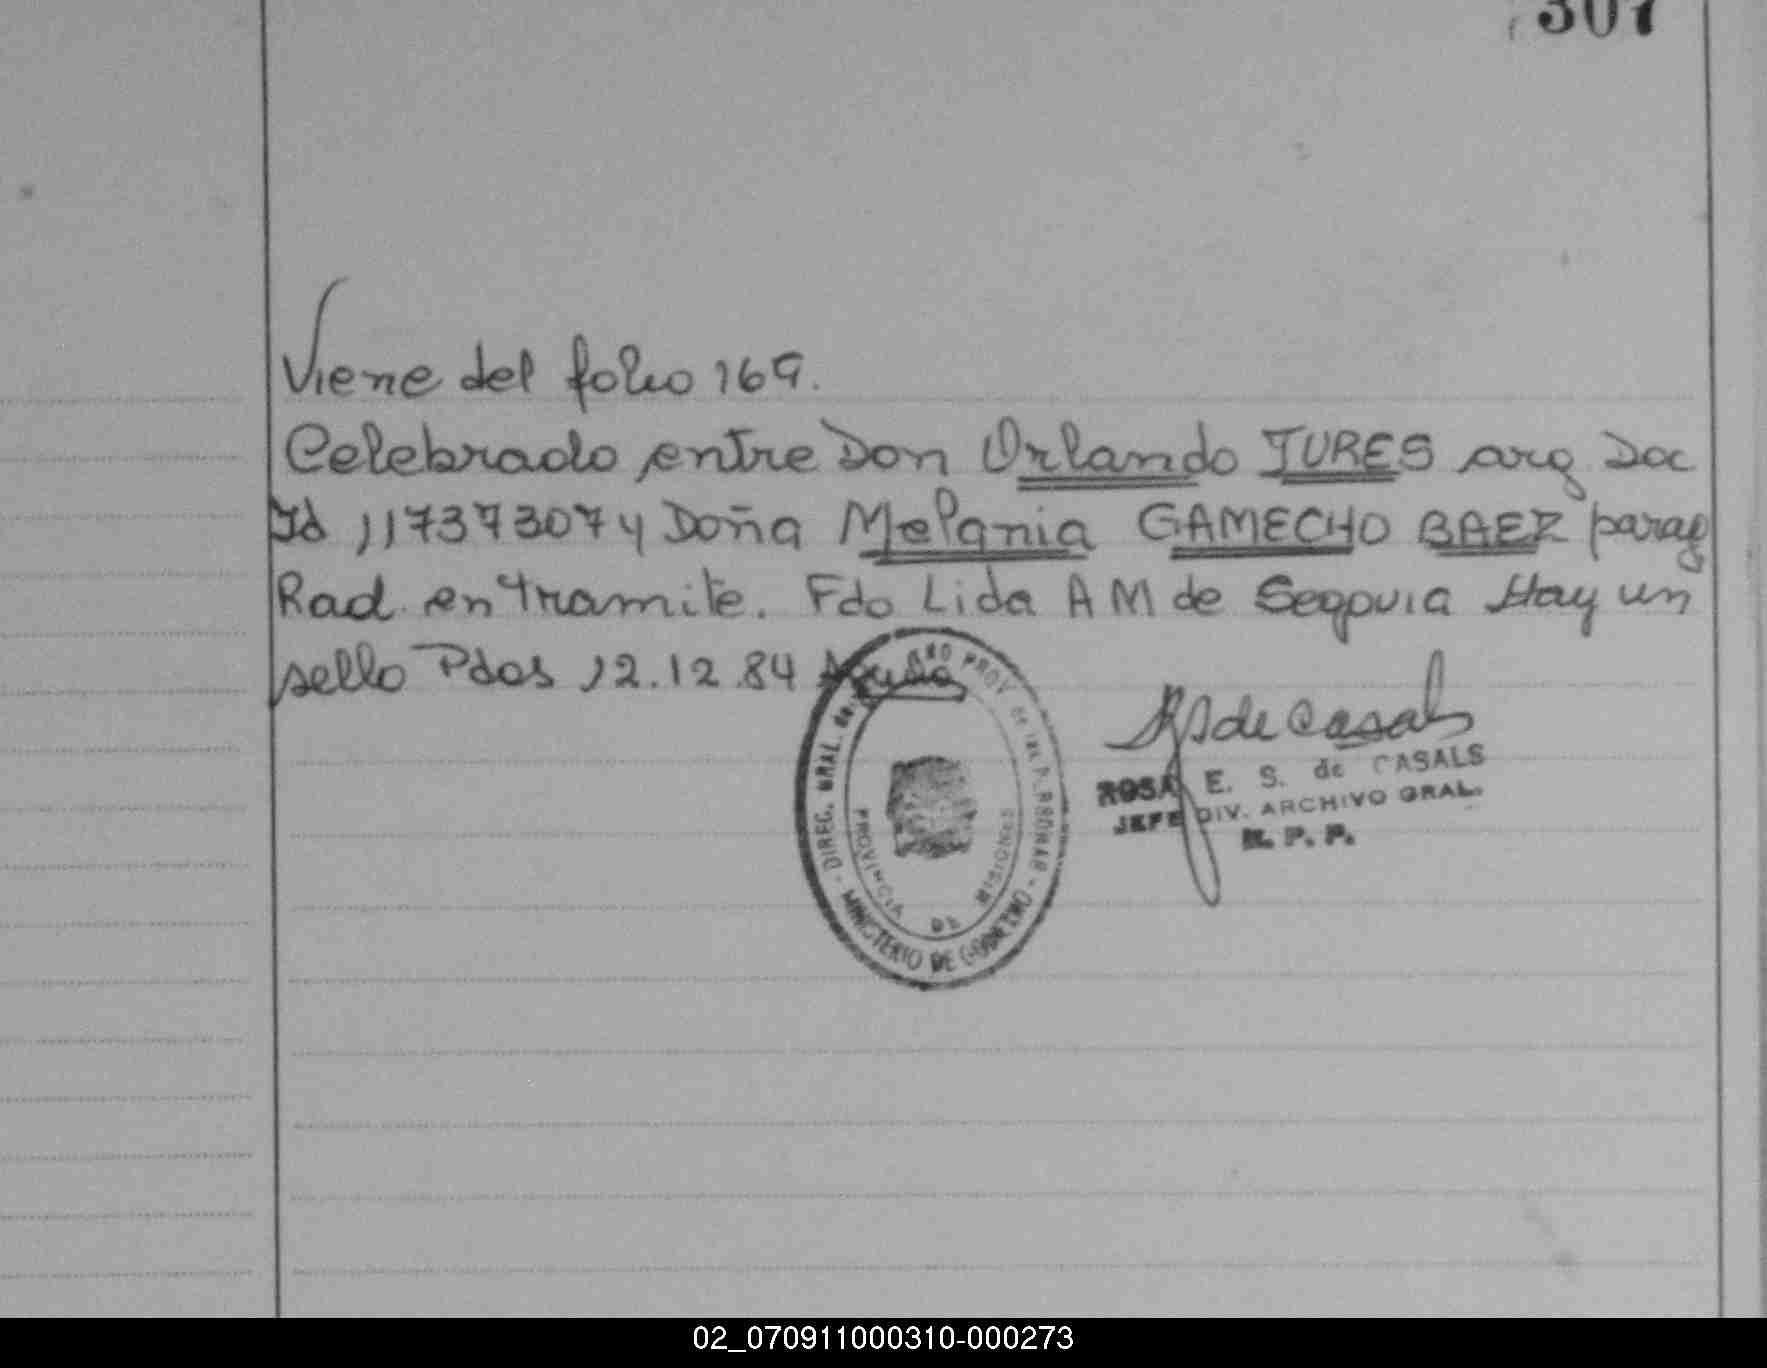 307
Viene del folio 169.
Celebrado entre Don Orlando JURES arg. Doc
Id 11737307 y Doña Melania GAMECHO BAEZ parag
Rad. en tramite. Fdo Lida A M de Segovia Hay un
sello Pdas 12.12.84
DIREC. GRAL. del PROV. de las PERSONAS - MINISTERIO DE GOBIERNO -
PROVINCIA DE MISIONES
RS de Casals
ROSA E. S. de CASALS
JEFE DIV. ARCHIVO GRAL.
R. P. P.
02_070911000310-000273